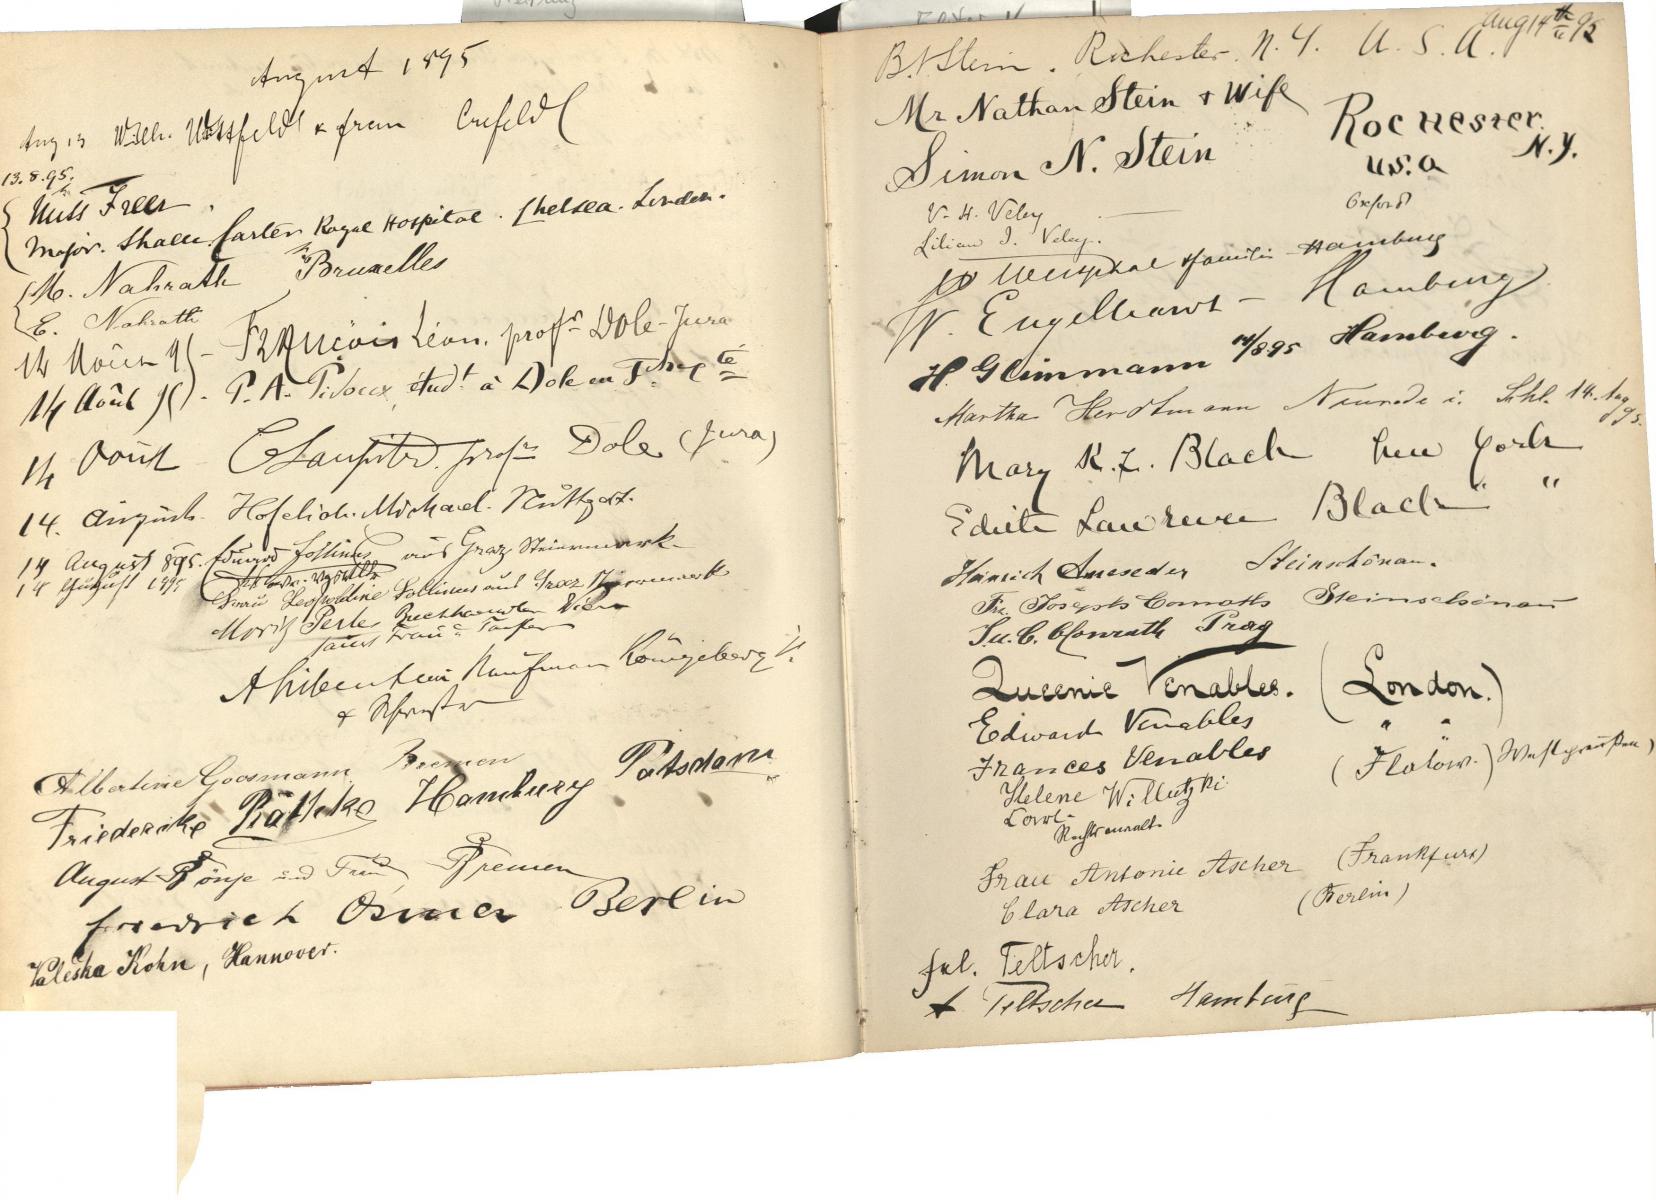 August 1895
Aug 13 Wilh. Westfeld & frau Crefeld
13.8.95.
Miss Freer.
Major. Shaen Carter Royal Hospital. Chelsea. London.
M. Nahrath Bruxelles
E. Nahrath
14 Août 95 - François Léon, profr Dole-Jura
14 Août 95 - P. A. Pidoux, étudt à Dole en Fche Cté
14 Août profr Dole (Jura)
14. August. Hofelich Michael. Stuttgart.
14 August 895. Eduard aus Graz Steiermark
14 August 1895
Frau Leopoldine aus Graz Steiermark
Moritz Perles Buchhändler Wien
samt Frau u.
Kaufman Königsberg
& Schwester
Albertine Goosmann Bremen
Friedericke Räthke Hamburg Potsdam
August Bönje und Frau, Bremen
Friedrich Osmer Berlin
Valeska Kohn, Hannover.
B. N Stein. Rochester. N. Y. U. S. A. Aug 14th 95
Mr Nathan Stein & Wife
Rochester N.Y.
U.S.A
Simon N. Stein
V. H. Veley Oxford
Lilian J. Veley.
W Westphal & familie Hamburg
W. Engelhardt - Hamburg
H. Glimmann 14/8 95 Hamburg.
Martha Herdtmann Neurode i. Schl. 14. Aug 95.
Mary K. L. Black New York
Edith Lawrence Black " "
Heinrich Ameseder Steinschönau.
Fr. Josephs Conraths Steinschönau
Conrath Prag
Queenie Venables. (London.)
Edward Venables " "
Frances Venables "
Helene Willutzki (Flatow.) Westpreußen)
Rechtsanwalt
Frau Antonie Ascher (Frankfurt)
Clara Ascher (Berlin)
Frl. Teltscher.
& Teltscher Hamburg